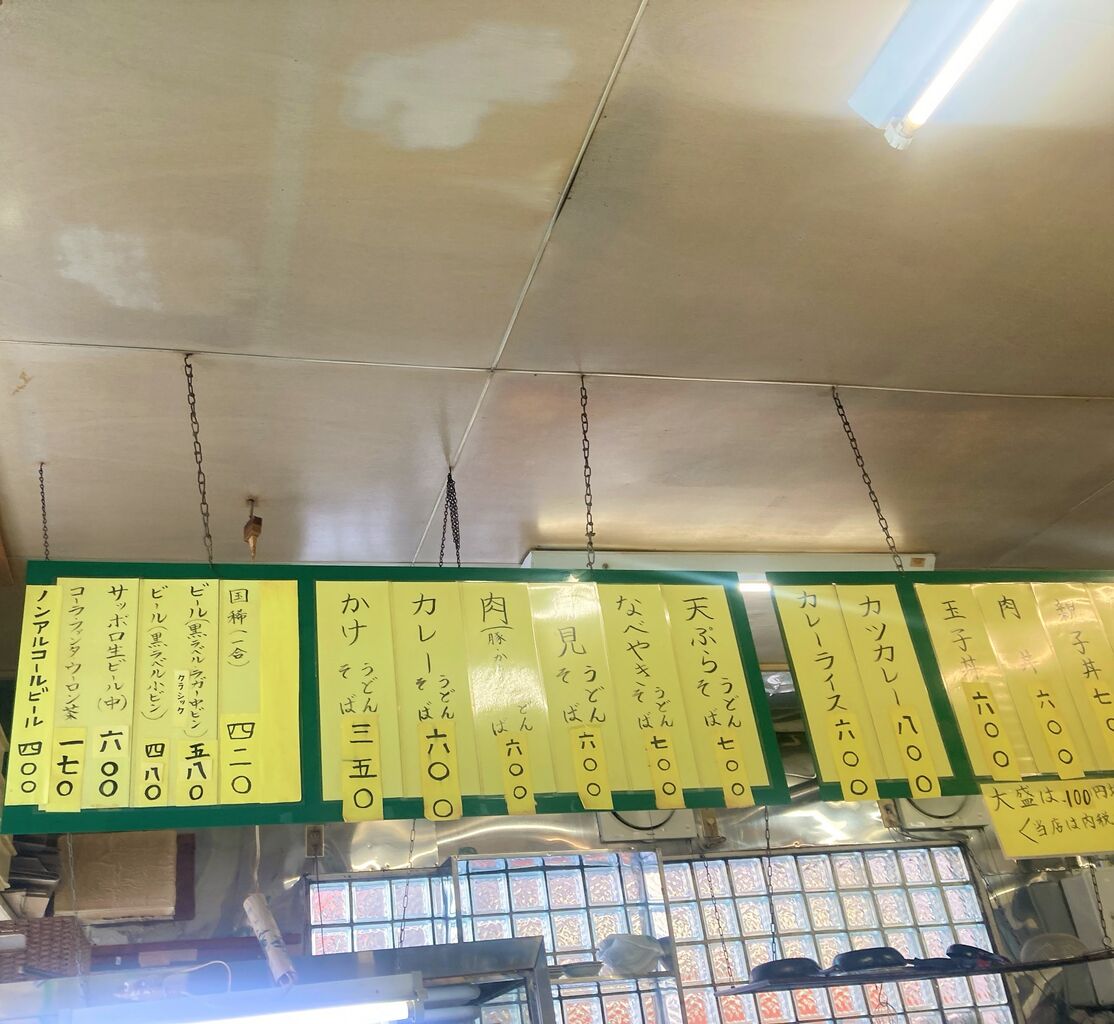 親子丼 七〇
肉丼 六〇〇
玉子丼 六〇〇
大盛は100円
(当店は内税
カツカレー 八〇〇
カレーライス 六〇〇
天ぷら うどん そば 七〇〇
なべやき うどん そば 七〇〇
見 うどん そば 六〇〇
肉(豚か どん ば 六〇〇
カレー うどん そば 六〇〇
かけ うどん そば 三五〇
国稀(一合) 四二〇
ビール(黒ラベル・ラガー中ビン) クラシック 五八〇
ビール(黒ラベル小ビン) 四八〇
サッポロ生ビール(中) 六〇〇
コーラ・ファンタ・ウーロン茶 一七〇
ノンアルコールビール 四〇〇